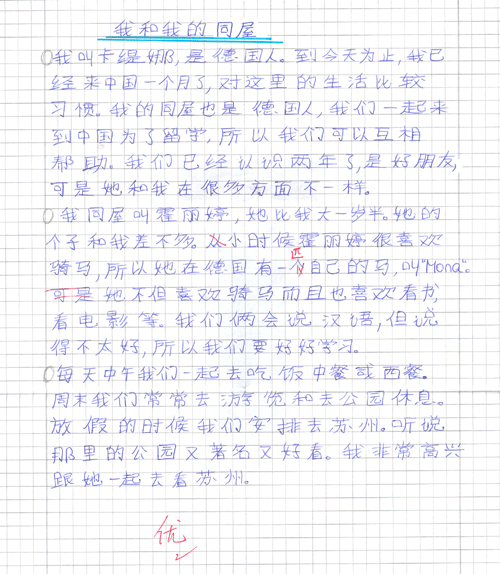 我和我的同屋
我叫卡缇娜,是德国人。到今天为止,我已
经来中国一个月了,对这里的生活比较
习惯。我的同屋也是德国人,我们一起来
到中国为了留学,所以我们可以互相
帮助。我们已经认识两年了,是好朋友,
可是她和我在很多方面不一样。
我同屋叫霍丽婷,她比我大一岁半。她的
个子和我差不多。从小时候霍丽婷很喜欢
骑马,所以她在德国有一个匹自己的马,叫"Mona"。
可是她不但喜欢骑马而且也喜欢看书,
看电影等。我们俩会说汉语,但说
得不太好,所以我们要好好学习。
每天中午我们一起去吃饭中餐或西餐。
周末我们常常去游览和去公园休息。
放假的时候我们安排去苏州。听说
那里的公园又著名又好看。我非常高兴
跟她一起去看苏州。
优